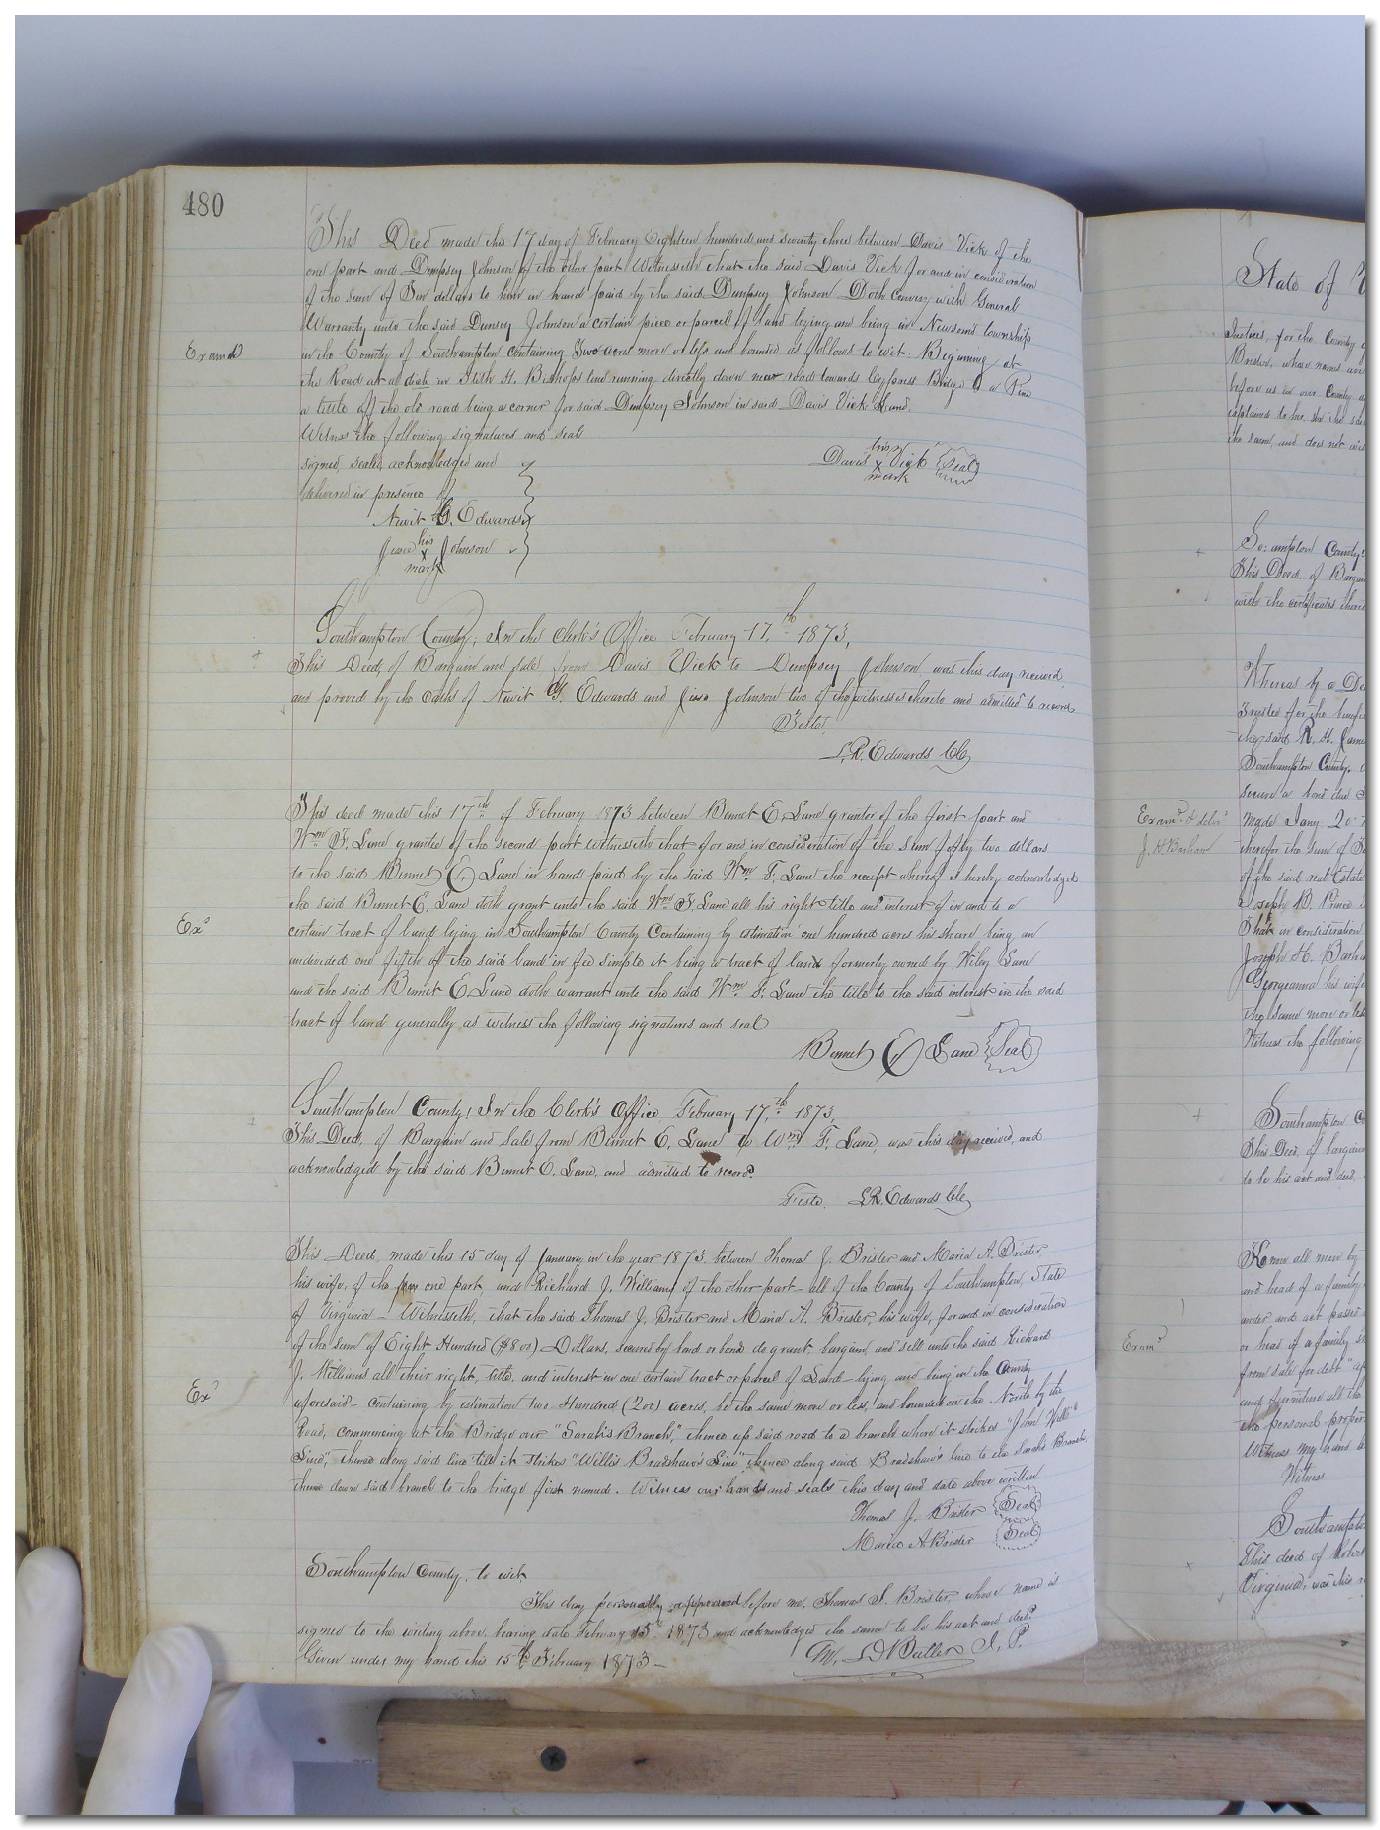 480
This Deed made this 17 day of February Eighteen hundred and seventy three between Davis Vick of the
one part and Dempsey Johnson of the other part Witnesseth that the said Davis Vick for and in consideration
of the sum of Ten dollars to him in hand paid by the said Dempsey Johnson Doth Convey with General
Warranty unto the said Demsey Johnson a certain piece or parcel of land lying and being in Newsoms township
Examd
in the County of Southampton containing Two acres more or less and bounded as follows to wit. Beginning at
the Road at a ditch in H. Bishops line running directly down road towards Cypress Bridge to a Pine
a little off the old road being a corner for said Dempsey Johnson in said Davis Vick Land.
Witness the following signatures and seal
signed, sealed, acknowledged and
delivered in presence of
Davis his x mark Vick Seal
Newit G. Edwards
his x mark Johnson
Southampton County, In the Clerk's Office February 17th 1873,
This Deed, of Bargain and Sale from Davis Vick to Dempsey Johnson was this day received
and proved by the oaths of Newit G. Edwards and Johnson two of the witnesses thereto and admitted to record
Teste,
L.R. Edwards Clk
This deed made this 17th of February 1873 between Bennet E. Lane grantor of the first part and
Wm F. Lane grantee of the second part witnesseth that for and in consideration of the sum fifty two dollars
to the said Bennet E Lane in hand paid by the said Wm F. Lane the receipt whereof is hereby acknowledged
the said Bennet E. Lane doth grant unto the said Wm F. Lane all his right title and interest of in and to a
Exd
certain tract of land lying in Southampton County Containing by estimation one hundred acres his share being an
undivided one fifth of the said land in fee simple it being a tract of land formerly owned by Wiley Lane
and the said Bennet E. Lane doth warrant unto the said Wm F. Lane the title to the said interest in the said
tract of land generally, as witness the following signatures and seal
Bennet E Lane Seal
Southampton County, In the Clerk's Office February 17th 1873,
This Deed, of Bargain and Sale from Bennet E. Lane to Wm F. Lane, was this day received, and
acknowledged by the said Bennet E. Lane, and admitted to record.
Teste. L.R. Edwards Clk
This Deed made this 15 day of January in the year 1873 between Thomas J. Brister and Maria A. Brister
his wife, of the one part, and Richard J. Williams of the other part all of the County of Southampton, State
of Virginia - Witnesseth, that the said Thomas J. Brister and Maria A. Brister, his wife, for and in consideration
of the sum of Eight Hundred ($800) Dollars, secured by bond or bonds do grant, bargain, and sell unto the said Richard
J. Williams all their right, title, and interest in one certain tract or parcel of Land lying and being in the County
Exd
aforesaid - containing by estimation two Hundred (200) acres, be the same more or less, and bounded on the North by the
Road, commencing at the Bridge over "Sarah's Branch," thence up said road to a branch where it strikes "John Will's
Line", thence along said line till it strikes "Willis Bradshaw's Line" thence along said Bradshaw's line to the Sarah's Branch,
thence down said branch to the bridge first named. Witness our hands and seals this day and date above written
Thomas J. Brister Seal
Maria A Brister Seal
Southampton County, to wit,
This day personally appeared before me, Thomas J. Brister, whose name is
signed to the writing above, bearing date February 15th 1873 and acknowledged the same to be his act and deed.
Given under my hand this 15th February 1873 -
Butler J. P.
State of
Justices, for the County
Brister, whose names are
before us in our County
explained to her she the said
the same, and does not wish
So: ampton County:
This Deed, of Bargain
with the certificates thereto
Whereas by a De
Trustee for the benefit
the said R. H. James
Southampton County.
secure a bond due
Made Jany 20
therefor the sum of
of the said real Estate
Joseph B. Prince
That in consideration
Joseph H. Barham
Georgeanna his wife
the same more or less
Witness the following
Southampton Co
This Deed, of bargain
to be his act and deed,
Know all men by
and head of a family
under and act passed
or head of a family
from sale for debt
and furniture all the
personal property
Witness my hand
Witness
Examd
Southampton
This deed of
Virginia, was this